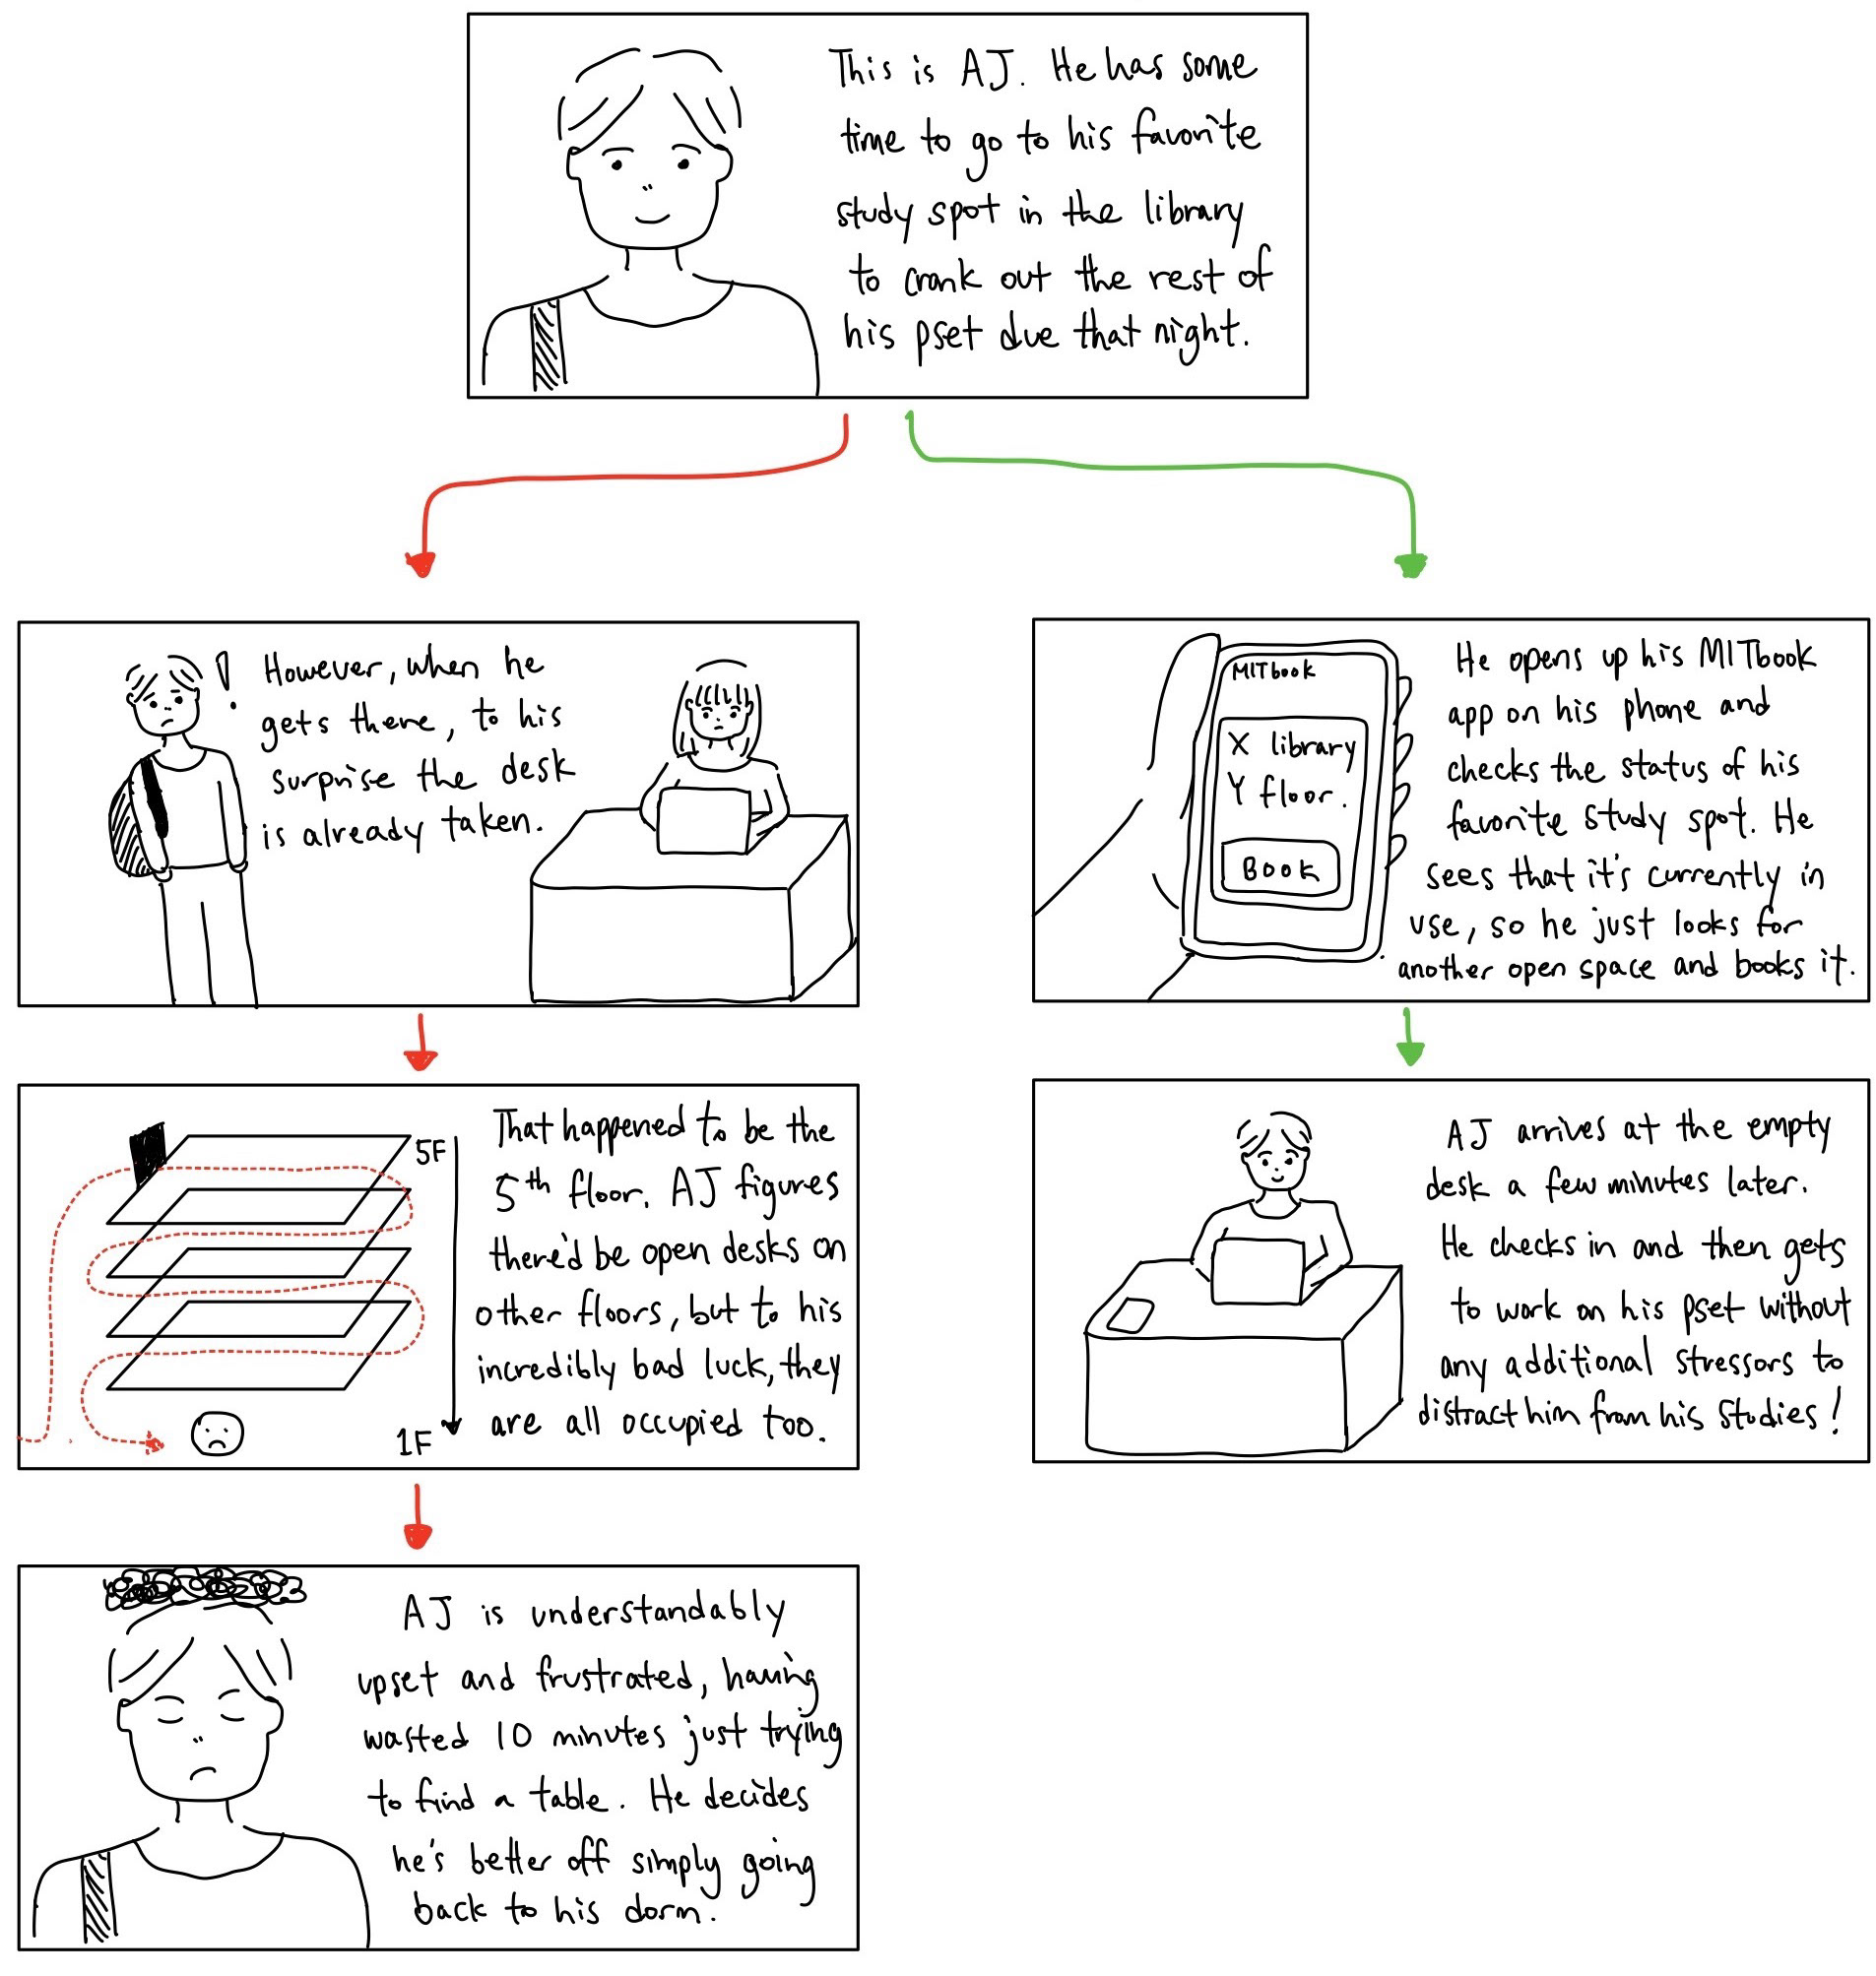 This is AJ. He has some
time to go to his favorite
study spot in the library
to crank out the rest of
his pset due that night.
!
However, when he
gets there, to his
surprise the desk
is already taken.
That happened to be the
5th floor. AJ figures
there'd be open desks on
other floors, but to his
incredibly bad luck, they
are all occupied too.
5F
1F
AJ is understandably
upset and frustrated, having
wasted 10 minutes just trying
to find a table. He decides
he's better off simply going
back to his dorm.
MITbook
X library
Y floor.
Book
He opens up his MITbook
app on his phone and
checks the status of his
favorite study spot. He
sees that it's currently in
use, so he just looks for
another open space and books it.
AJ arrives at the empty
desk a few minutes later.
He checks in and then gets
to work on his pset without
any additional stressors to
distract him from his studies!